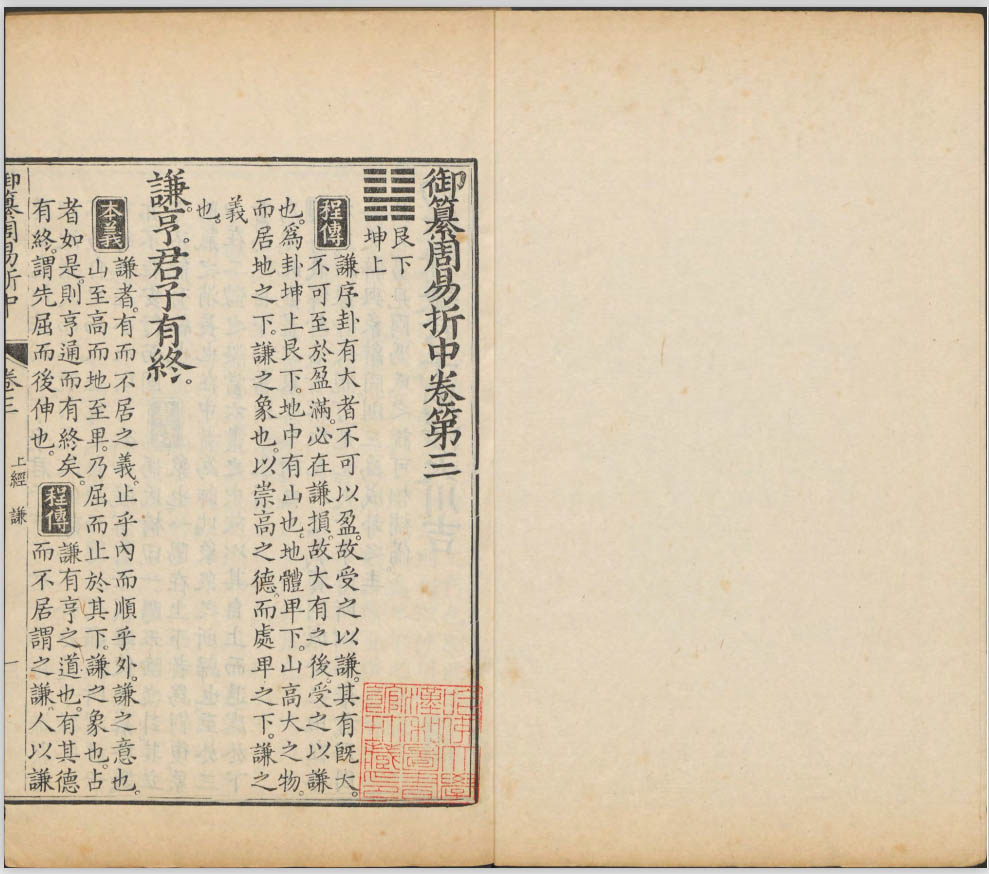 御纂周易折中卷第三
艮下
坤上
程傳
謙序卦有大者不可以盈。故受之以謙。其有既大。
不可至於盈滿。必在謙損。故大有之後。受之以謙
也。爲卦坤上艮下。地中有山也。地體卑下。山高大之物。
而居地之下。謙之象也。以崇高之德。而處卑之下。謙之
義
也。
謙亨。君子有終。
本義
謙者。有而不居之義。止乎內而順乎外。謙之意也。
山至高而地至卑。乃屈而止於其下。謙之象也。占
者如是。則亨通而有終矣。
程傳
謙有亨之道也。有其德
有終。謂先屈而後伸也。
而不居謂之謙。人以謙
御纂周易折中
卷三
上經 謙
一
哈佛大學
漢和圖書
館珍藏印